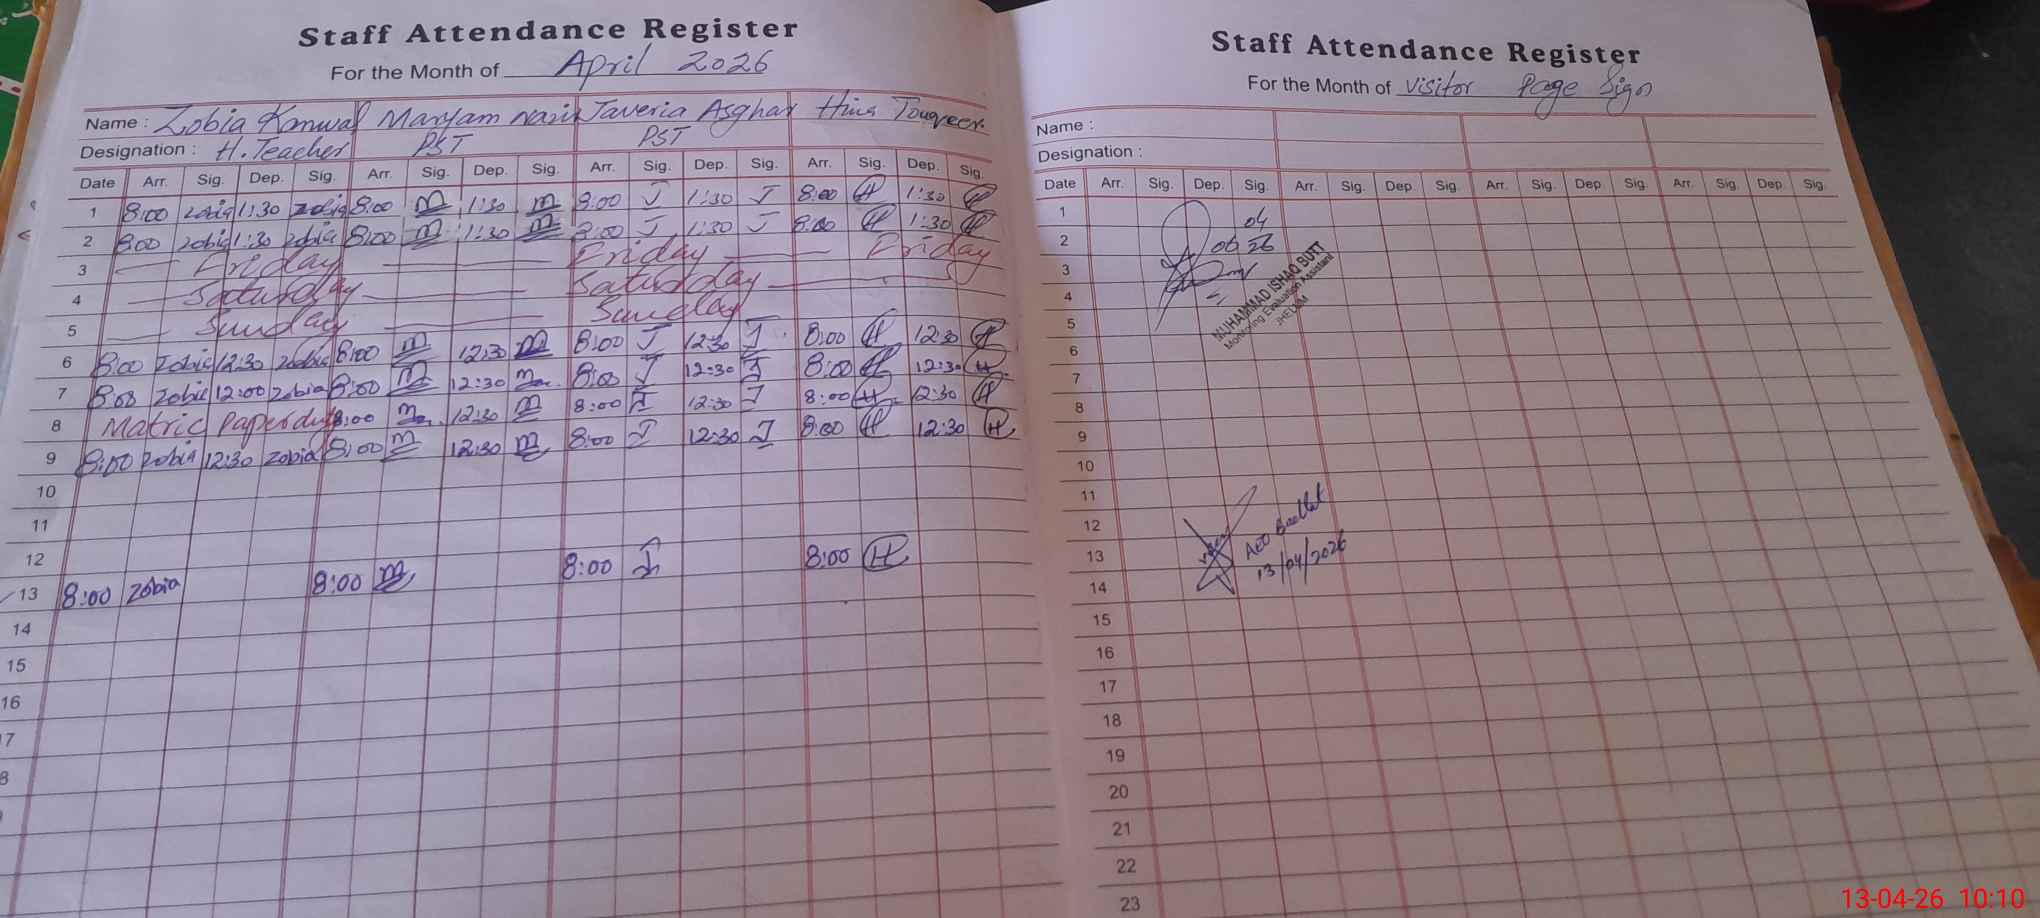 Staff Attendance Register
For the Month of April 2026
Name : Zobia Kanwal Maryam Nazir Javeria Asghar Hina Touqeer
Designation : H. Teacher PST PST
Date Arr. Sig. Dep. Sig. Arr. Sig. Dep. Sig. Arr. Sig. Dep. Sig. Arr. Sig. Dep. Sig.
1 8:00 zobia 1:30 zobia 8:00 m 1:30 m 8:00 J 1:30 J 8:00 H 1:30 H
2 8:00 zobia 1:30 zobia 8:00 m 1:30 m 8:00 J 1:30 J 8:00 H 1:30 H
3 Friday Friday Friday
4 Saturday Saturday
5 Sunday Sunday
6 8:00 zobia 12:30 zobia 8:00 m 12:30 m 8:00 J 12:30 J 8:00 H 12:30 H
7 8:00 zobia 12:00 zobia 8:00 m 12:30 m 8:00 J 12:30 J 8:00 H 12:30 H
8 Matric Paper duty 8:00 m 12:30 m 8:00 J 12:30 J 8:00 H 12:30 H
9 8:00 zobia 12:30 zobia 8:00 m 12:30 m 8:00 J 12:30 J 8:00 H 12:30 H
10
11
12
13 8:00 zobia 8:00 m 8:00 J 8:00 H
14
15
16
7
8
Staff Attendance Register
For the Month of visitor Page Sign
Name :
Designation :
Date Arr. Sig. Dep. Sig. Arr. Sig. Dep. Sig. Arr. Sig. Dep. Sig. Arr. Sig. Dep. Sig.
1 04
2 06 26
3
4
5
MUHAMMAD ISHAQ BUTT
Monitoring Evaluation Assistant
JHELUM
6
7
8
9
10
11
12
13 AEO
14 13/04/2026
15
16
17
18
19
20
21
22
23
13-04-26 10:10